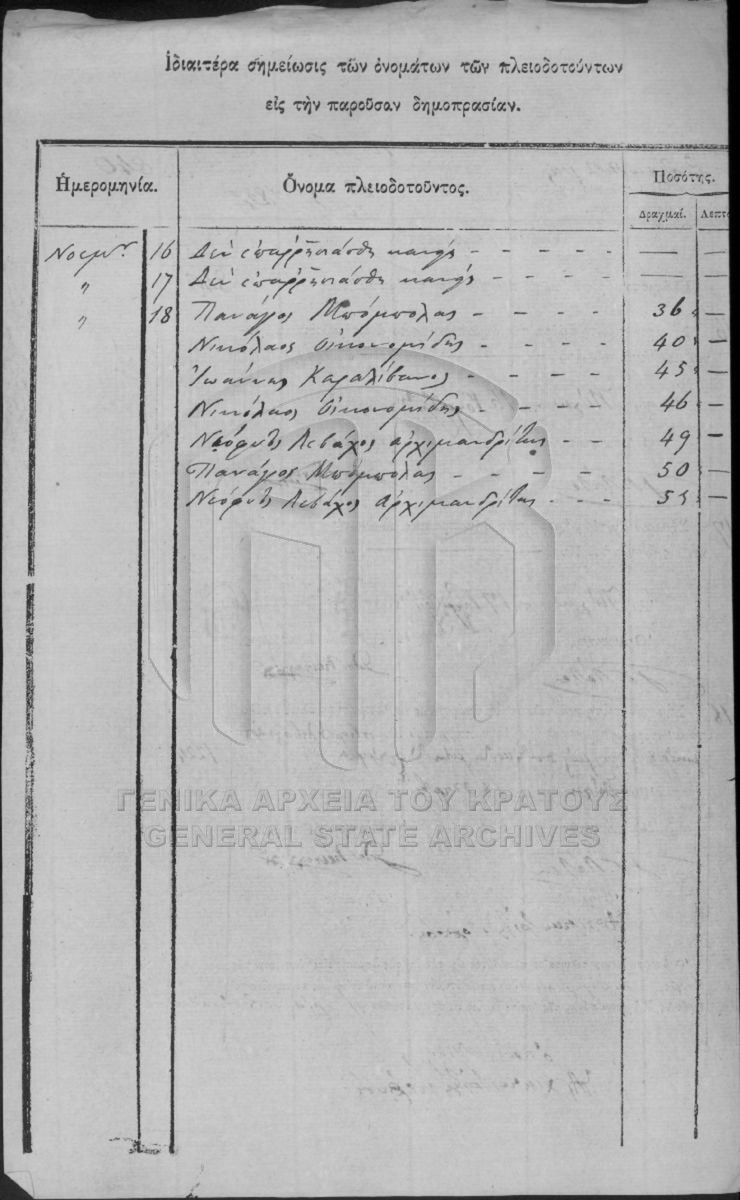 Ἰδιαιτέρα σημείωσις τῶν ὀνομάτων τῶν πλειοδοτούντων
εἰς τὴν παροῦσαν δημοπρασίαν.
Ἡμερομηνία. Ὄνομα πλειοδοτοῦντος. Ποσότης.
Δραχμαί. Λεπτὰ
Νοεμβρ 16 Δὲν ἐπαρρησιάσθη κανεὶς - - - - — —
〃 17 Δὲν ἐπαρρησιάσθη κανεὶς - - - - — —
〃 18 Πανάγος Μπόμπολας - - - - 36 —
Νικόλαος Οἰκονομίδης - - - - 40 —
Ἰωάννης Καραλίβανος - - - - 45 —
Νικόλαος Οἰκονομίδης - - - - 46 —
Νεόφυτος ἀρχιμανδρίτης - - 49 —
Πανάγος Μπόμπολας - - - - 50 —
Νεόφυτος ἀρχιμανδρίτης - - - 55 —
ΓΕΝΙΚΑ ΑΡΧΕΙΑ ΤΟΥ ΚΡΑΤΟΥΣ
GENERAL STATE ARCHIVES